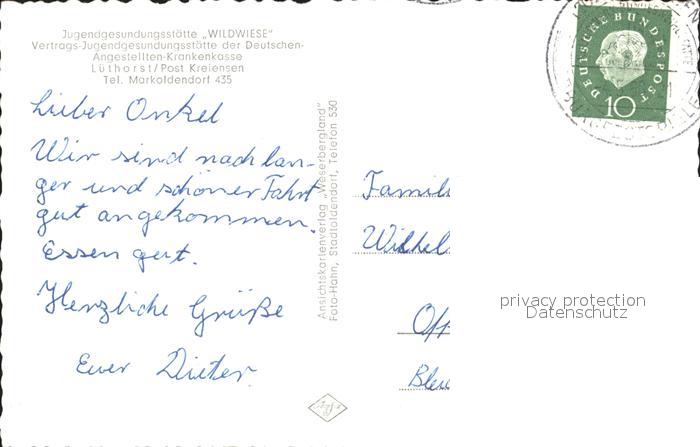 Jugendgesundungsstätte „WILDWIESE"
Vertrags-Jugendgesundungsstätte der Deutschen-
Angestellten-Krankenkasse
Lüthorst/Post Kreiensen
Tel. Markoldendorf 435
Lieber Onkel
Wir sind nach lan-
ger und schöner Fahrt
gut angekommen.
Essen gut.
Herzliche Grüße
Euer Dieter.
Ansichtskartenverlag „Weserbergland"
Foto-Hahn, Stadtoldendorf, Telefon 530
Agfa
DEUTSCHE BUNDESPOST
10
Famil
Wilhel
Off
Bleu
privacy protection
Datenschutz